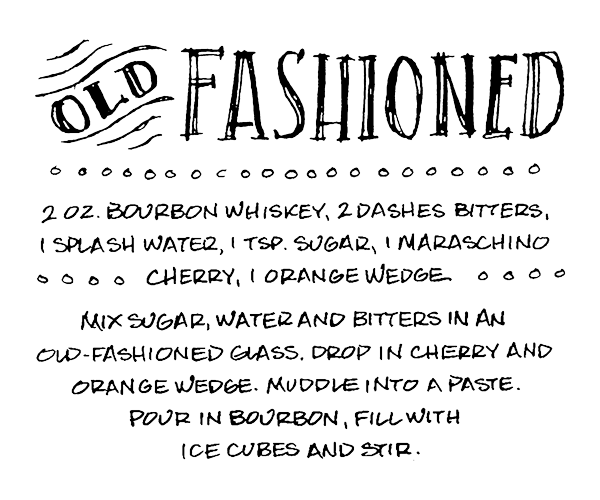 OLD FASHIONED
2 OZ. BOURBON WHISKEY, 2 DASHES BITTERS,
1 SPLASH WATER, 1 TSP. SUGAR, 1 MARASCHINO
CHERRY, 1 ORANGE WEDGE.
MIX SUGAR, WATER AND BITTERS IN AN
OLD-FASHIONED GLASS. DROP IN CHERRY AND
ORANGE WEDGE. MUDDLE INTO A PASTE.
POUR IN BOURBON, FILL WITH
ICE CUBES AND STIR.